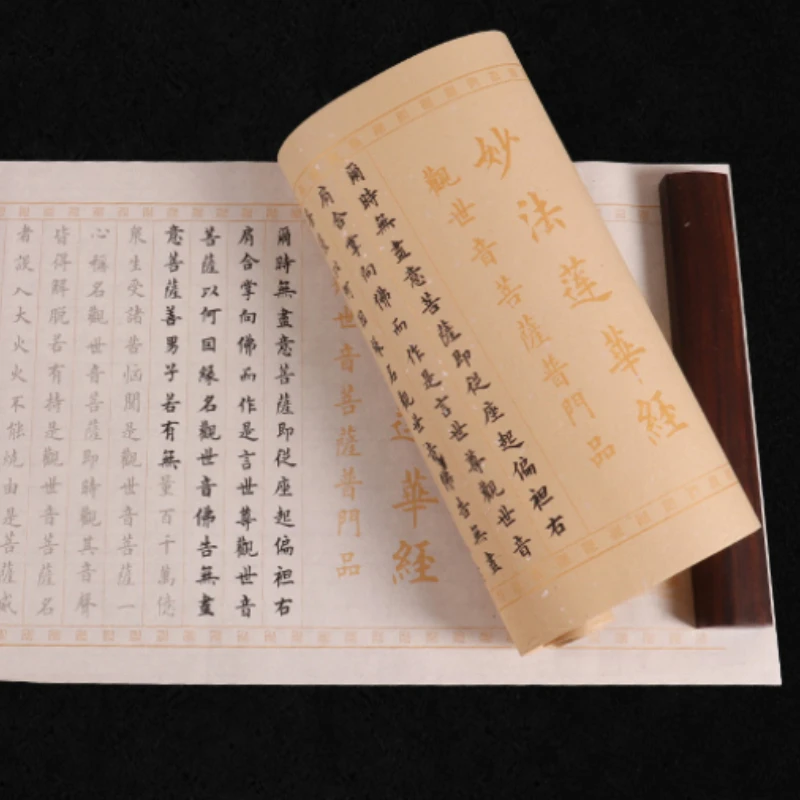 妙法蓮華經
觀世音菩薩普門品
爾時無盡意菩薩即從座起偏袒右
肩合掌向佛而作是言世尊觀世音
何因緣名觀世音佛告無盡
華經
世音菩薩普門品
爾時無盡意菩薩即從座起偏袒右
肩合掌向佛而作是言世尊觀世音
菩薩以何因緣名觀世音佛告無盡
意菩薩善男子若有無量百千萬億
衆生受諸苦惱聞是觀世音菩薩一
心稱名觀世音菩薩即時觀其音聲
皆得解脫若有持是觀世音菩薩名
者設入大火火不能燒由是菩薩威